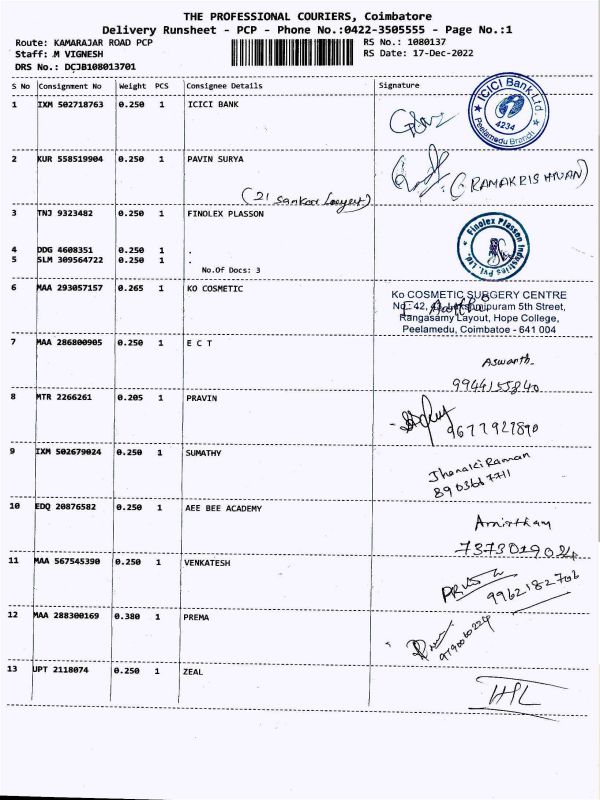 THE PROFESSIONAL COURIERS, Coimbatore
Delivery Runsheet - PCP - Phone No.:0422-3505555 - Page No.:1
Route: KAMARAJAR ROAD PCP RS No.: 1080137
Staff: .M VIGNESH RS Date: 17-Dec-2022
DRS No.: DCJB108013701
S No Consignment No Weight PCS Consignee Details Signature
1 IXM 502718763 0.250 1 ICICI BANK
ICICI Bank Ltd.
4234
Peelamedu Branch
2 KUR 558519904 0.250 1 PAVIN SURYA
(RAMAKRISHNAN)
3 TNJ 9323482 0.250 1 FINOLEX PLASSON
Finolex Plasson Industries Pvt. Ltd.
4 DDG 4608351 0.250 1 .
5 SLM 309564722 0.250 1 .
No.Of Docs: 3
6 MAA 293057157 0.265 1 KO COSMETIC
Ko COSMETIC SURGERY CENTRE
Rangasamy Layout, Hope College,
Peelamedu, Coimbatoe - 641 004
7 MAA 286800905 0.250 1 E C T
Aswanth.
9944155840
8 MTR 2266261 0.205 1 PRAVIN
9677927890
9 IXM 502679024 0.250 1 SUMATHY
Jhanaki Raman
8903667711
10 EDQ 20876582 0.250 1 AEE BEE ACADEMY
Amirtham
11 MAA 567545390 0.250 1 VENKATESH
9962182706
12 MAA 288300169 0.380 1 PREMA
13 UPT 2118074 0.250 1 ZEAL